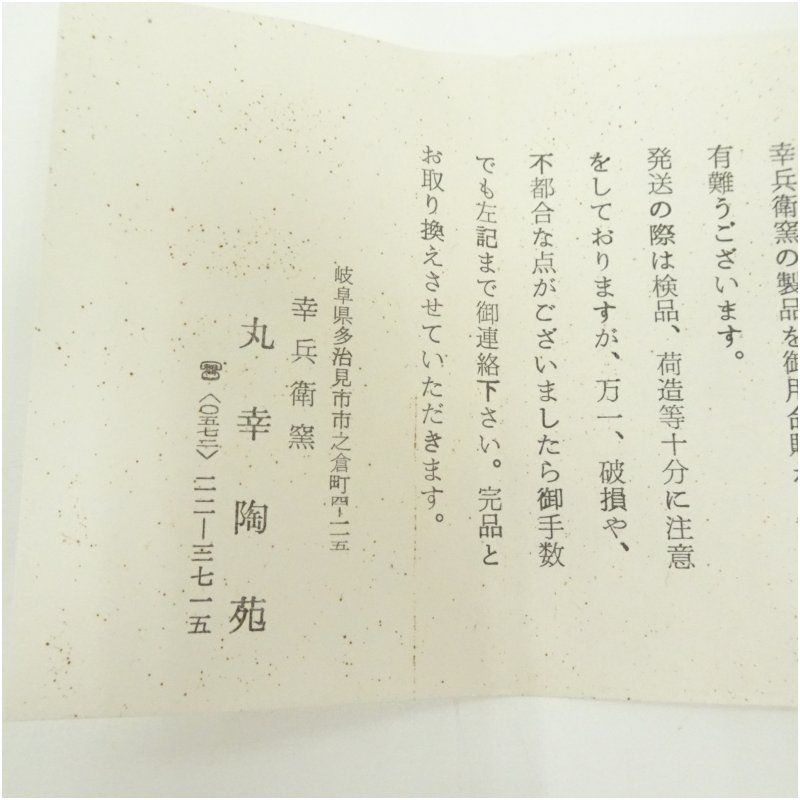 幸兵衛窯の製品を御用命賜
有難うございます。
発送の際は検品、荷造等十分に注意
をしておりますが、万一、破損や、
不都合な点がございましたら御手数
でも左記まで御連絡下さい。完品と
お取り換えさせていただきます。
岐阜県多治見市市之倉町四ー二五
幸兵衛窯
丸幸陶苑
☎〈〇五七二〉二二ー三七一五